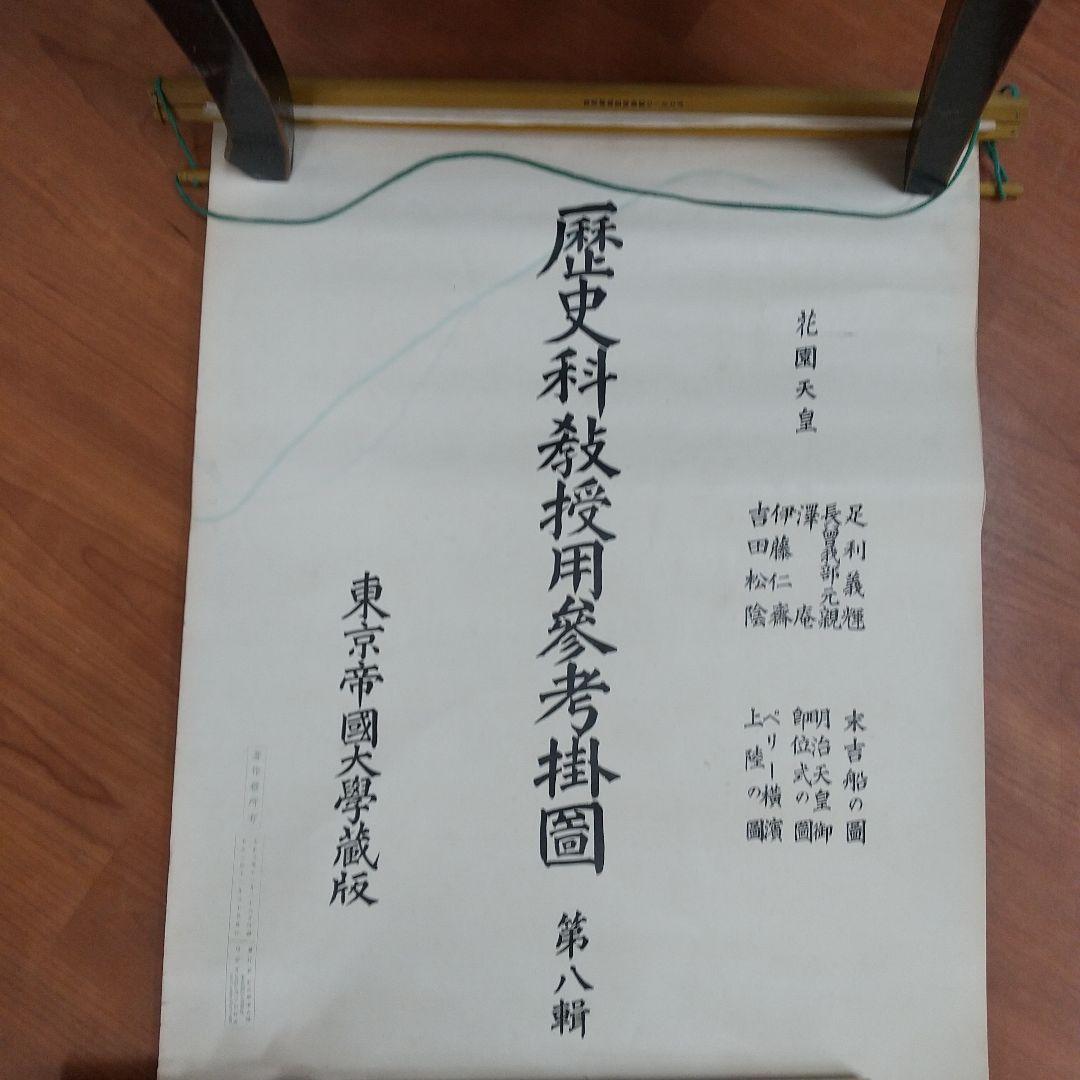 花園天皇
足利義輝
長曾我部元親
澤庵
伊藤仁齋
吉田松陰
末吉船の圖
明治天皇御
即位式の圖
ペリー橫濱
上陸の圖
歷史科教授用參考掛圖 第八輯
東京帝國大學藏版
著作權所有